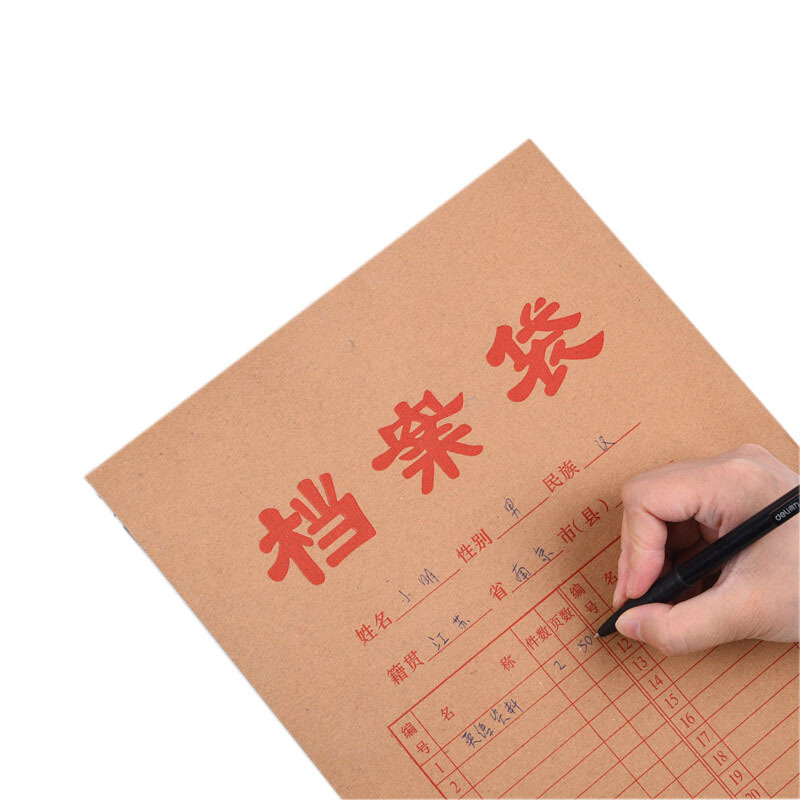 档案袋
姓名 小明 性别 男 民族 汉
籍贯 江苏 省 南京 市(县)
编号 名称 件数 页数 编号 名
1 英语资料 2 50
2
12
13
14
15
16
17
18
19
20
deli